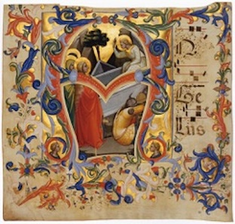 A
N
Ge
Lus